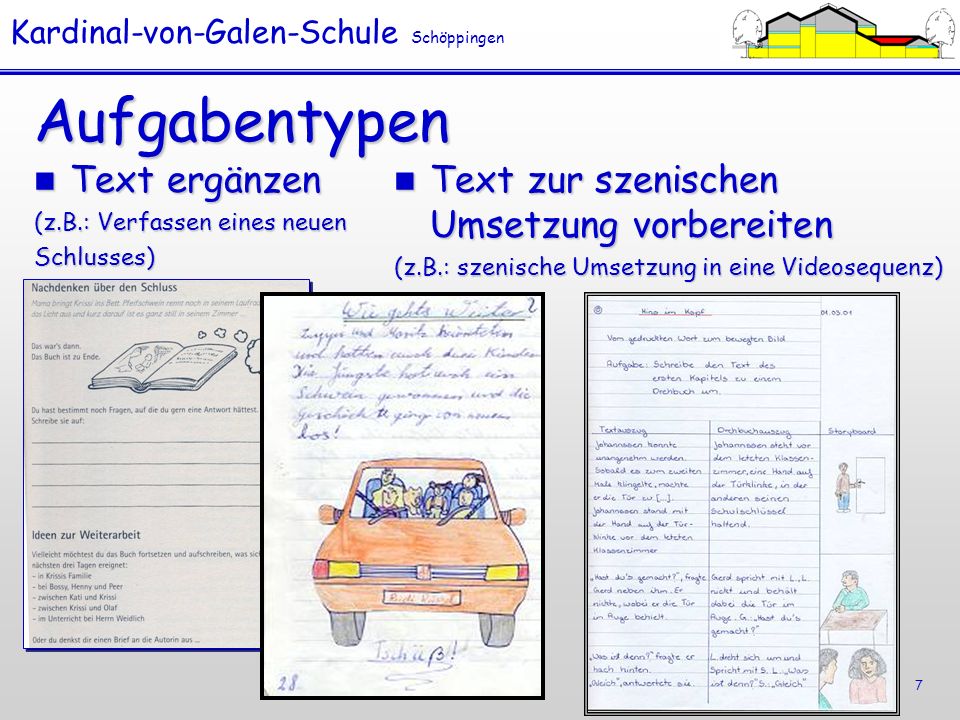 Kardinal-von-Galen-Schule Schöppingen
Aufgabentypen
Text ergänzen
(z.B.: Verfassen eines neuen
Schlusses)
Text zur szenischen
Umsetzung vorbereiten
(z.B.: szenische Umsetzung in eine Videosequenz)
Nachdenken über den Schluss
Mama bringt Krissi ins Bett. Pfeifschwein rennt noch in seinem Laufrad
das Licht aus und kurz darauf ist es ganz still in seinem Zimmer ...
Das war's dann.
Das Buch ist zu Ende.
Du hast bestimmt noch Fragen, auf die du gern eine Antwort hättest.
Schreibe sie auf:
Ideen zur Weiterarbeit
Vielleicht möchtest du das Buch fortsetzen und aufschreiben, was sich
nächsten drei Tagen ereignet:
- in Krissis Familie
- bei Bossy, Henny und Peer
- zwischen Kati und Krissi
- zwischen Krissi und Olaf
- im Unterricht bei Herrn Weidlich
Oder du denkst dir einen Brief an die Autorin aus ...
Wie gehts Weiter 2
und Moritz heirateten
und hatten auch drei Kinder
Die Jüngste hat auch ein
Schwein gewonnen und die
Geschichte ging von neuen
los!
Tschüß!
28.
Kino im Kopf 01.03.01
Vom gedruckten Wort zum bewegten Bild
Aufgabe: Schreibe den Text des
ersten Kapitels zu einem
Drehbuch um.
Textauszug
Johannssen konnte
unangenehm werden.
Sobald es zum zweiten
Male klingelte, machte
er die Tür zu [...].
Johannssen stand mit
der Hand auf der Tür-
klinke vor dem letzten
Klassenzimmer
Drehbuchauszug
Johannssen steht vor
dem letzten Klassen-
zimmer, eine Hand auf
der Türklinke, in der
anderen seinen
Schulschlüssel
haltend.
Storyboard
„Hast du's gemacht?", fragte
Gerd neben ihm. Er
nickte, wobei er die Tür
im Auge behielt.
Gerd spricht mit L., L.
nickt und behält
dabei die Tür im
Auge. G.: „Hast du's
gemacht?"
„Was ist denn?" fragte er
nach hinten.
„Gleich", antwortete sie.
L. dreht sich um und
spricht mit S. L.: „Was
ist denn?" S.: „Gleich"
7